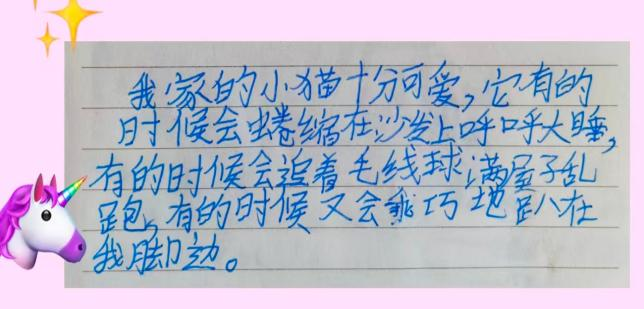 我家的小猫十分可爱,它有的
时候会蜷缩在沙发上呼呼大睡,
有的时候会追着毛线球满屋子乱
跑,有的时候又会乖巧地趴在
我脚边。